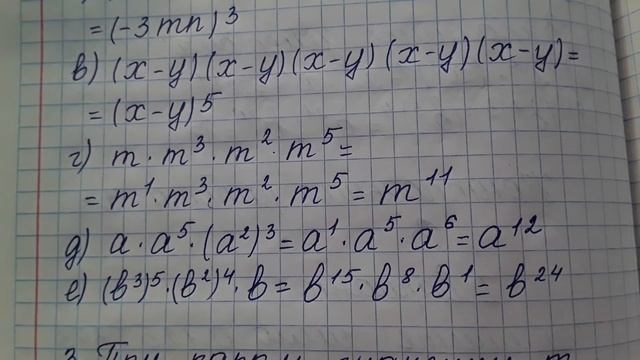 = (-3mn)³
в) (x-y)(x-y)(x-y)(x-y)(x-y)=
= (x-y)⁵
г) m · m³ · m² · m⁵ =
= m¹ · m³ · m² · m⁵ = m¹¹
д) a · a⁵ · (a²)³ = a¹ · a⁵ · a⁶ = a¹²
е) (b³)⁵ · (b²)⁴ · b = b¹⁵ · b⁸ · b¹ = b²⁴
3. При